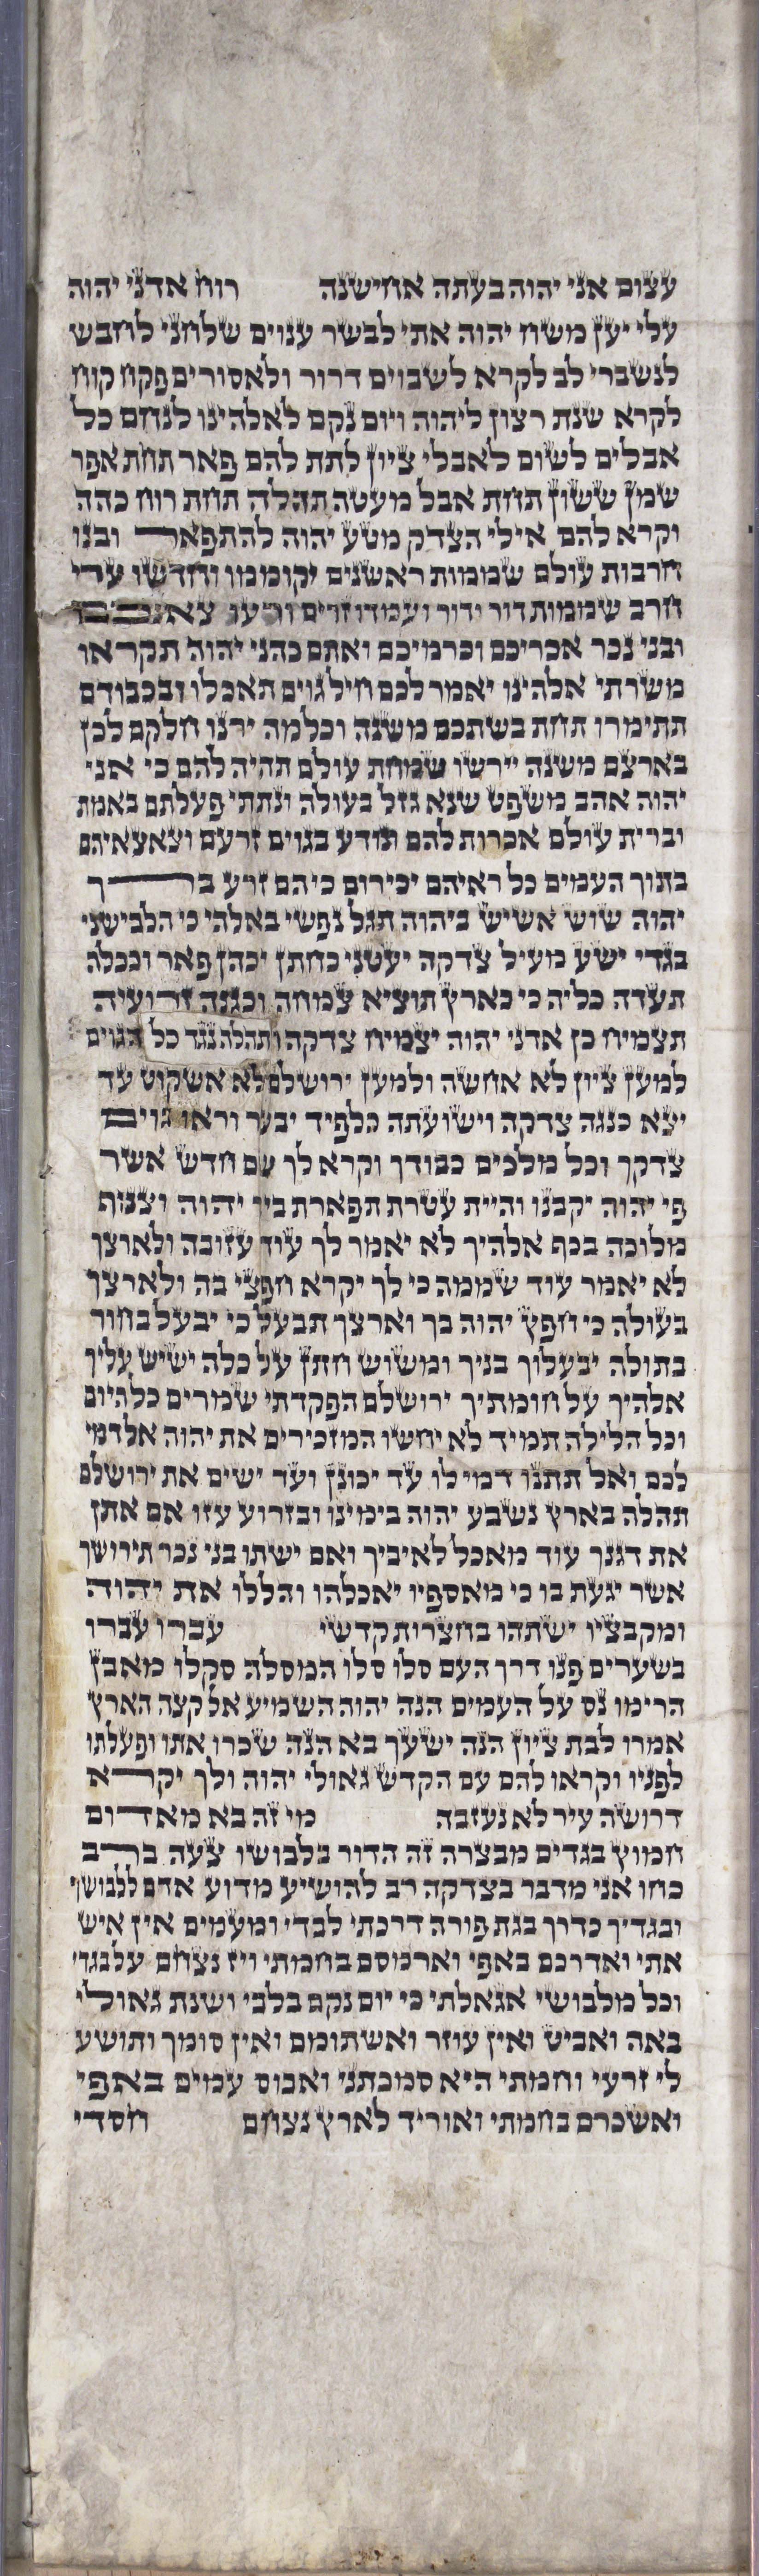 עצום אני יהוה בעתה אחישנה רוח אדני יהוה
עלי יען משח יהוה אתי לבשר ענוים שלחני לחבש
לנשברי לב לקרא לשבוים דרור ולאסורים פקח קוח
לקרא שנת רצון ליהוה ויום נקם לאלהינו לנחם כל
אבלים לשום לאבלי ציון לתת להם פאר תחת אפר
שמן ששון תחת אבל מעטה תהלה תחת רוח כהה
וקרא להם אילי הצדק מטע יהוה להתפאר ובנו
חרבות עולם שממות ראשנים יקוממו וחדשו ערי
חרב שממות דור ודור ועמדו זרים ורעו צאנכם
ובני נכר אכריכם וכרמיכם ואתם כהני יהוה תקראו
משרתי אלהינו יאמר לכם חיל גוים תאכלו ובכבודם
תתימרו תחת בשתכם משנה וכלמה ירנו חלקם לכן
בארצם משנה יירשו שמחת עולם תהיה להם כי אני
יהוה אהב משפט שנא גזל בעולה ונתתי פעלתם באמת
וברית עולם אכרות להם ונודע בגוים זרעם וצאצאיהם
בתוך העמים כל ראיהם יכירום כי הם זרע ברך
יהוה שוש אשיש ביהוה תגל נפשי באלהי כי הלבישני
בגדי ישע מעיל צדקה יעטני כחתן יכהן פאר וככלה
תעדה כליה כי כארץ תוציא צמחה וכגנה זרועיה
תצמיח כן אדני יהוה יצמיח צדקה ותהלה נגד כל הגוים
למען ציון לא אחשה ולמען ירושלם לא אשקוט עד
יצא כנגה צדקה וישועתה כלפיד יבער וראו גוים
צדקך וכל מלכים כבודך וקרא לך שם חדש אשר
פי יהוה יקבנו והיית עטרת תפארת ביד יהוה וצנוף
מלוכה בכף אלהיך לא יאמר לך עוד עזובה ולארצך
לא יאמר עוד שממה כי לך יקרא חפצי בה ולארצך
בעולה כי חפץ יהוה בך וארצך תבעל כי יבעל בחור
בתולה יבעלוך בניך ומשוש חתן על כלה ישיש עליך
אלהיך על חומתיך ירושלם הפקדתי שמרים כל היום
וכל הלילה תמיד לא יחשו המזכירים את יהוה אל דמי
לכם ואל תתנו דמי לו עד יכונן ועד ישים את ירושלם
תהלה בארץ נשבע יהוה בימינו ובזרוע עזו אם אתן
את דגנך עוד מאכל לאיביך ואם ישתו בני נכר תירושך
אשר יגעת בו כי מאספיו יאכלהו והללו את יהוה
ומקבציו ישתהו בחצרות קדשי עברו עברו
בשערים פנו דרך העם סלו סלו המסלה סקלו מאבן
הרימו נס על העמים הנה יהוה השמיע אל קצה הארץ
אמרו לבת ציון הנה ישעך בא הנה שכרו אתו ופעלתו
לפניו וקראו להם עם הקדש גאולי יהוה ולך יקרא
דרושה עיר לא נעזבה מי זה בא מאדום
חמוץ בגדים מבצרה זה הדור בלבושו צעה ברב
כחו אני מדבר בצדקה רב להושיע מדוע אדם ללבושך
ובגדיך כדרך בגת פורה דרכתי לבדי ומעמים אין איש
אתי ואדרכם באפי וארמסם בחמתי ויז נצחם על בגדי
וכל מלבושי אגאלתי כי יום נקם בלבי ושנת גאולי
באה ואביט ואין עוזר ואשתומם ואין סומך ותושע
לי זרעי וחמתי היא סמכתני ואבוס עמים באפי
ואשכרם בחמתי ואוריד לארץ נצחם חסדי